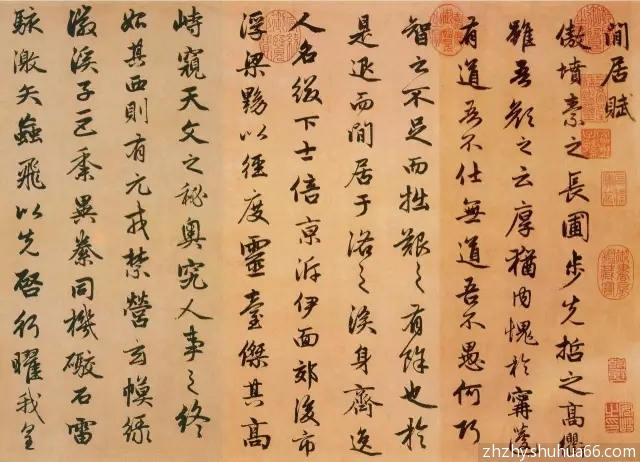 閒居賦
傲墳素之長圃步先哲之高衢
雖吾顏之云厚猶内愧於甯蘧
有道吾不仕無道吾不愚何巧
智之不足而拙艱之有餘也於
是退而閒居于洛之涘身齊逸
人名綴下士倍京泝伊面郊後市
浮梁黝以徑度靈臺傑其高
峙窺天文之秘奥究人事之終
始其西則有元戎禁營玄幙緑
徽溪子巨黍異絭同機礮石雷
駭激矢蝱飛以先啓行曜我皇
zhzhy.shuhua66.com